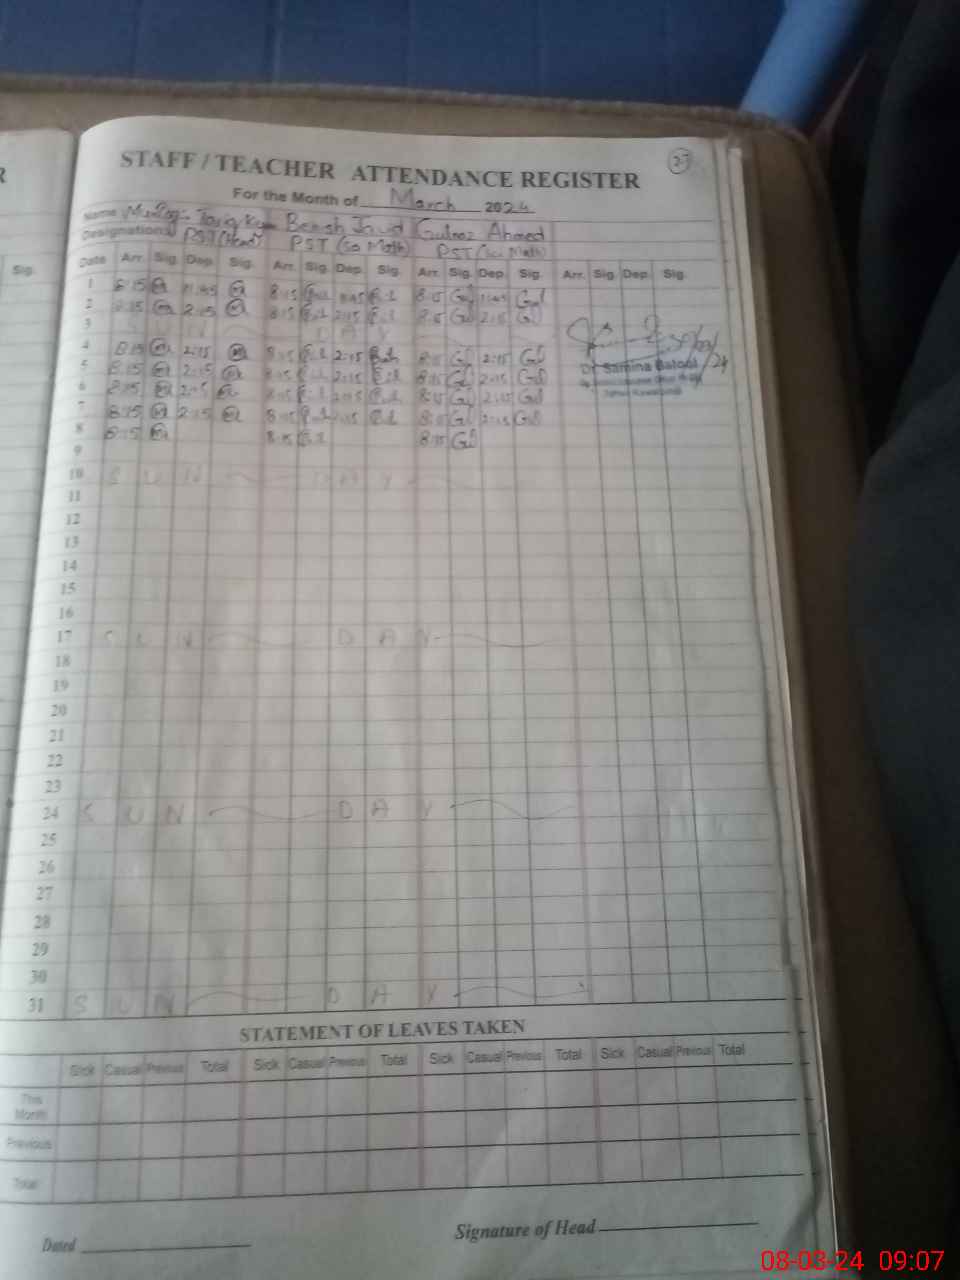 R
27
STAFF / TEACHER ATTENDANCE REGISTER
For the Month of March 2024
Name Benish Javid Gulnaz Ahmed
Designations PST (Head) PST (Sci Math) PST (Sci Math)
Sig.
Date Arr. Sig. Dep. Sig. Arr. Sig. Dep. Sig. Arr. Sig. Dep. Sig. Arr. Sig. Dep. Sig.
1 8:15 11:45 8:15 11:45 8:15 Gul 11:45 Gul
2 8:15 2:15 8:15 2:15 8:15 Gul 2:15 Gul
3 S U N D A Y
4 8:15 2:15 8:15 2:15 8:15 Gul 2:15 Gul
5 8:15 2:15 8:15 2:15 8:15 Gul 2:15 Gul
6 8:15 2:15 8:15 2:15 8:15 Gul 2:15 Gul
7 8:15 2:15 8:15 2:15 8:15 Gul 2:15 Gul
8 8:15 8:15 8:15 Gul
Dr Samina Batool
9
10 S U N D A Y
11
12
13
14
15
16
17 S U N D A Y
18
19
20
21
22
23
24 S U N D A Y
25
26
27
28
29
30
31 S U N D A Y
STATEMENT OF LEAVES TAKEN
Sick Casual Previous Total Sick Casual Previous Total Sick Casual Previous Total Sick Casual Previous Total
This
Month
Previous
Total
Signature of Head
Dated
08-03-24 09:07